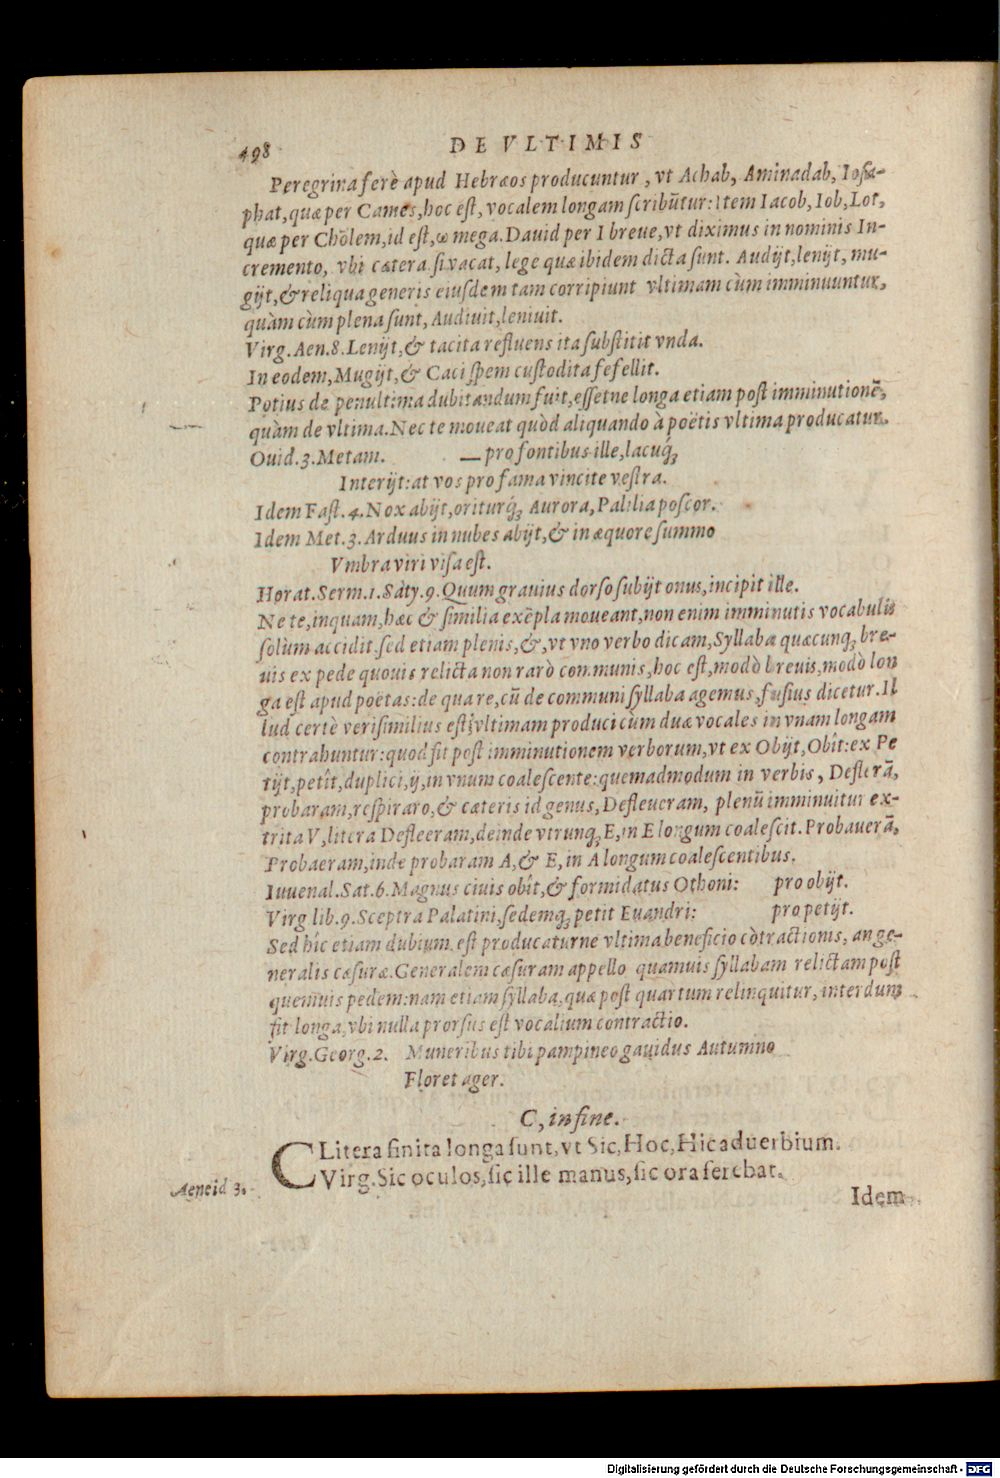 498
DE VLTIMIS
Peregrina ferè apud Hebræos producuntur, vt Achab, Aminadab, Iosa-
phat, quæ per Cames, hoc est, vocalem longam scribũtur: Item Iacob, Iob, Lot,
quæ per Cholem, id est, ω mega. Dauid per I breue, vt diximus in nominis In-
cremento, vbi cætera si vacat, lege quæ ibidem dicta sunt. Audijt, lenijt, mu-
gijt, & reliqua generis eiusdem tam corripiunt vltimam cùm imminuuntur,
quàm cùm plena sunt, Audiuit, leniuit.
Virg. Aen. 8. Lenijt, & tacita refluens ita substitit vnda.
In eodem, Mugijt, & Caci spem custodita fefellit.
Potius de penultima dubitandum fuit, essetne longa etiam post imminutionẽ,
quàm de vltima. Nec te moueat quòd aliquando à poëtis vltima producatur.
Ouid. 3. Metam. — pro fontibus ille, lacuq́;
Interijt: at vos pro fama vincite vestra.
Idem Fast. 4. Nox abijt, oriturq́; Aurora, Palilia poscor.
Idem Met. 3. Arduus in nubes abijt, & in æquore summo
Vmbra viri visa est.
Horat. Serm. 1. Saty. 9. Quum grauius dorso subijt onus, incipit ille.
Ne te, inquam, hæc & similia exẽpla moueant, non enim imminutis vocabulis
solùm accidit, sed etiam plenis, &, vt vno verbo dicam, Syllaba quæcunq; bre-
uis ex pede quouis relicta non rarò communis, hoc est, modò breuis, modò lon
ga est apud poëtas: de qua re, cũ de communi syllaba agemus, fusius dicetur. Il
lud certè verisimilius est, vltimam produci cùm duæ vocales in vnam longam
contrahuntur: quod fit post imminutionem verborum, vt ex Obijt, Obît: ex Pe
tijt, petît, duplici, ij, in vnum coalescente: quemadmodum in verbis, Deflerã,
probaram, respiraro, & cæteris id genus, Defleueram, plenũ imminuitur ex-
trita V, litera Defleeram, deinde vtrunq; E, in E longum coalescit. Probauerã,
Probaeram, inde probaram A, & E, in A longum coalescentibus.
Iuuenal. Sat. 6. Magnus ciuis obît, & formidatus Othoni: pro obijt.
Virg lib. 9. Sceptra Palatini, sedemq; petit Euandri: pro petijt.
Sed hîc etiam dubium est producaturne vltima beneficio cõtractionis, an ge-
neralis cæsuræ. Generalem cæsuram appello quamuis syllabam relictam post
quemuis pedem: nam etiam syllaba, quæ post quartum relinquitur, interdum
fit longa, vbi nulla prorsus est vocalium contractio.
Virg. Georg. 2. Muneribus tibi pampineo gauidus Autumno
Floret ager.
C, in fine.
C Litera finita longa sunt, vt Sic, Hoc, Hic aduerbium.
Aeneid 3. Virg. Sic oculos, sic ille manus, sic ora ferebat.
Idem
Digitalisierung gefördert durch die Deutsche Forschungsgemeinschaft - DFG